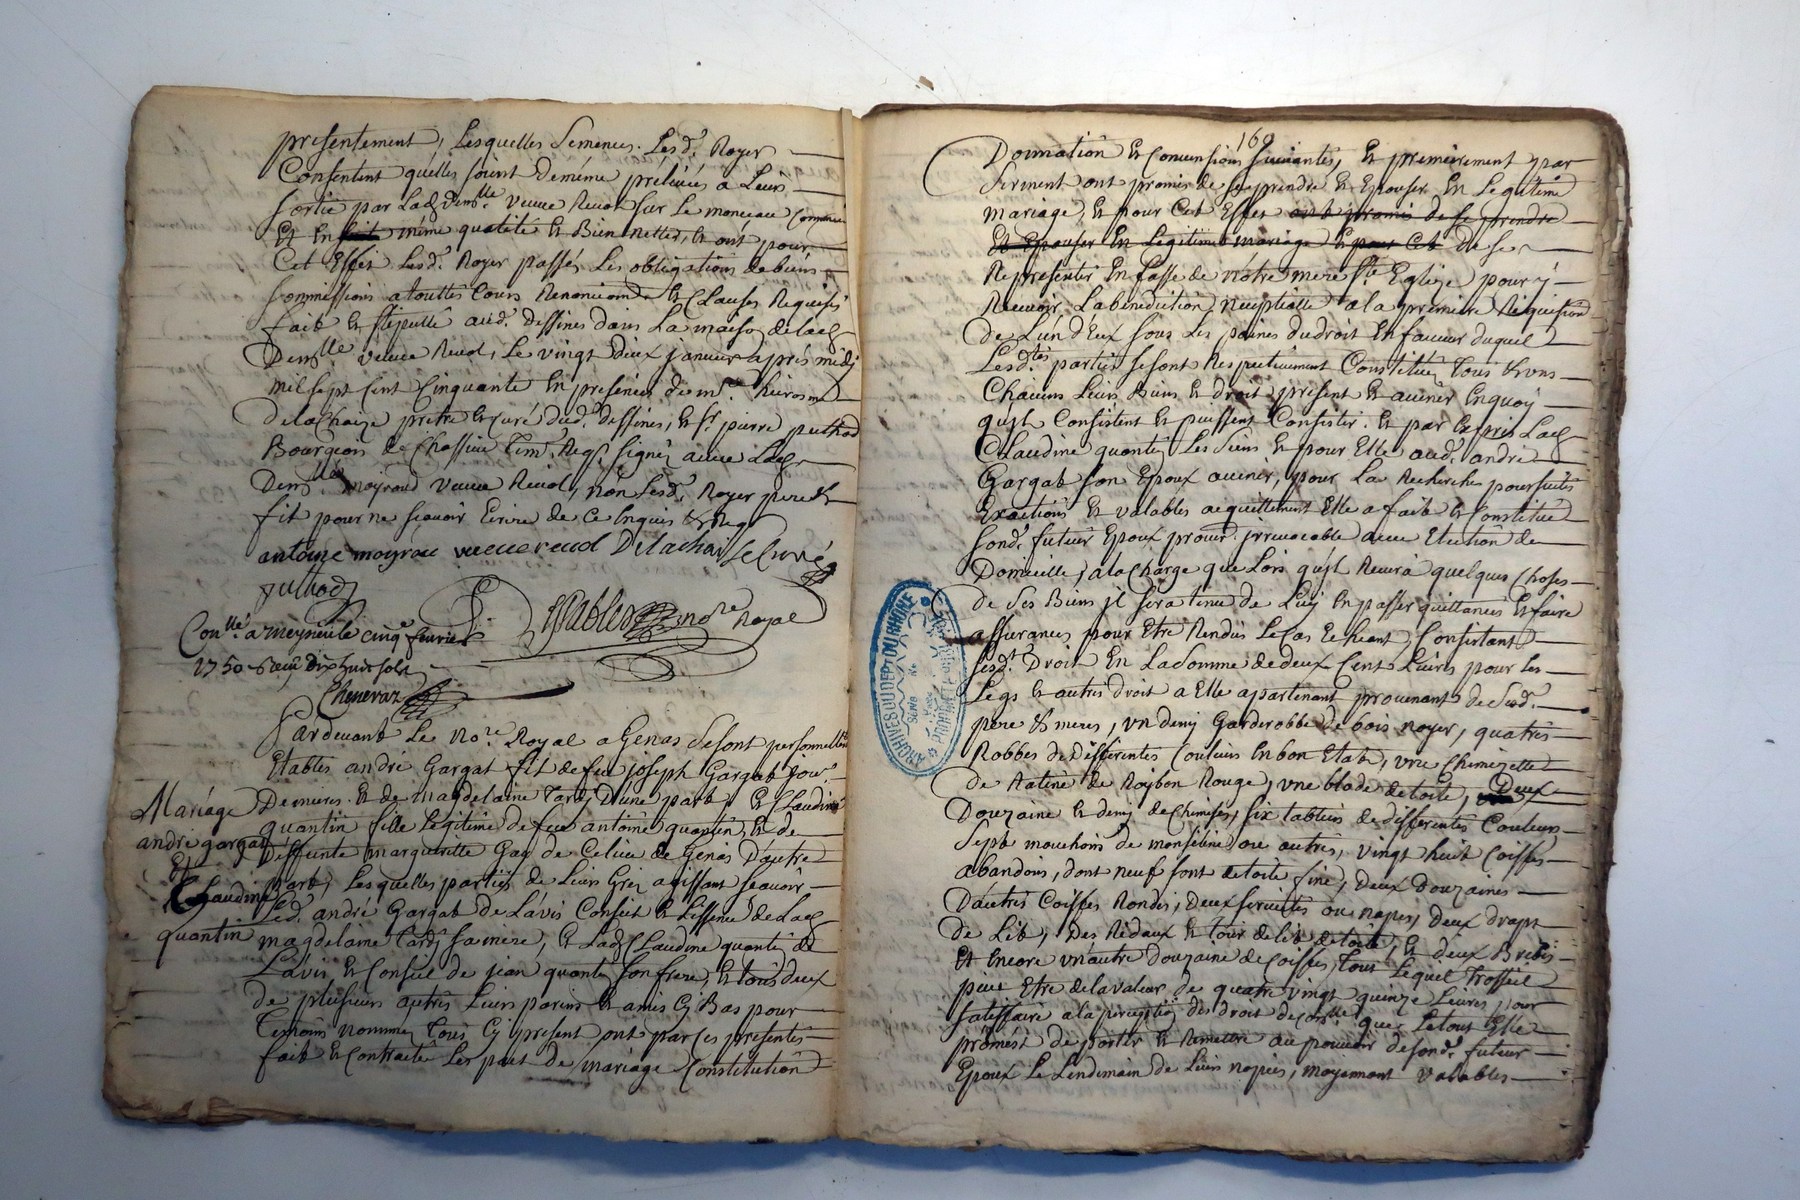 presentement, Lesquelles Semences. Lesd. Royer
Consentent qu'elles soient deméme prélevées a Leur
sortie par Lad. Dem.lle veuve Revol sur Le monceau Commun
Et En même qualité et Bien nettes, et ont pour
Cet Effet Lesd. Royer passés Les obligations de biens
sommissions a touttes Cours Renonciaon.s et Clauses Requises
fait et stipullé aud. Dessines dans La maison de lad.
Dem.lle veuve Revol, Le vingt deux janvier après midy
mil sept Cent Cinquante En presences de m.re hierosme
De la Chaize pretre et curé dud. Dessines, et s.r pierre puthod
Bourgeois de Chassieu Tem. Req. signés avec Lad.
Dem.lle moyroud veuve Revol, non Lesd. Royer pere et
fils pour ne sçavoir Ecrire de Ce Enquis et Req.
antoize moyrou veuve revol Delachaize Curé
puthod
no.re Royal
Con.llé a meyzieu le cinq février
1750 Reçu dix huit sols
Chenevaz
Pardevant Le No.re Royal a Genas se sont personnellem.t
Etablis andré Gargat fils de feu joseph Gargat jour.
Mariage
andré gargat
Et
Claudine
quantin
De mieres. Et de magdelaine Tardy D'une part, Et Claudine
quantin fille Legitime de feu antoine quantin, et de
Deffunte margueritte Gay de Celieu de Genas D'autre
Part, Lesquelles parties de Leurs Grez agissant sçavoir
Led. andré Gargat de L'avis Conseil et Lissence de Lad.
magdelaine Tardy sa mere, Et Lad. Claudine quantin de
L'avis et Conseil de jean quantin son frere, et tous deux
de plusieurs autres Leurs parens et amis Cy Bas pour
Temoins nommés Tous Cy present ont par ces presentes
fait et Contracté Les pact de mariage Constitution
169
Dormation Et Convensions suivantes, Et premierement par
serment ont promis de se prendre et Epouser En Legitime
mariage, et pour Cet Effet ont promis de se prendre
et Epouser En Legitime mariage Et pour Cet de se
Representer En fasse de nôtre mere s.te Eglize pour y
Recevoir La benediction Neuptialle a la premiere Requisition
de L'un d'Eux sous Les peines du droit En faveur duquel
Lesd.tes parties se sont Respectivement Constitués Tous et uns
Chacuns Leurs Biens et droit present Et avenir Enquoy
qu'jl Consistent et puissent Consister. et par Exprès Lad.
Claudine quantin Les siens Et pour Elle aud. andré
Gargat son Epoux avenir, pour La Recherches poursuites
Exactions et valables acquittement Elle a fait et Constitué
sond. futeur Epoux procur. jrrevocable avec Election de
Domicille, a la Charge que Lors qu'jl Recevra quelques Choses
de ses Biens jl sera tenu de Luy En passer quittances Et faire
assurances pour Etre Rendus Le Cas Echeant, Consistant
sesd.t Droit En La Somme de deux Cent Livres pour les
Legs et autres droit a Elle apartenant provenant de Sesd.
pere et meres, un demy Garderobbe de bois noyer, quatres
Robbes de Differentes Couleurs En bon Etat, une Chemizette
de Ratine de Roybon Rouge, une blode de toile, Deux
Douzaine et demy de Chemises, six tabliers de differentes Couleurs
Sept mouchoirs de monseline ou autres, vingt huit Coiffes
abandons, dont neuf sont de toile fine, Deux Douzaines
D'autres Coiffes Rondes, Deux serviettes ou napes, deux draps
de Lit, Des Ridaux Et tour de lit de toile, Et deux Brebis
Et Encore un'autre Douzaine de Coiffes, Tous Lequel Trossell
peut Etre de la valeur de quatre vingt quinze Livres, pour
satisffaire a la perception des droit de con.lle que Le tout Elle
promest de porter et Remettre au pouvoir de sond. futeur
Epoux Le Lendemain de Leurs nopces, moyennant valables
ARCHIVES DU DEPT DU RHÔNE